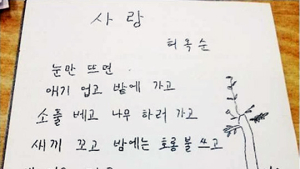 사랑
허옥순
눈만 뜨면
애기 업고 밭에 가고
소풀 베고 나무 하러 가고
새끼 꼬고 밤에는 호롱불 쓰고